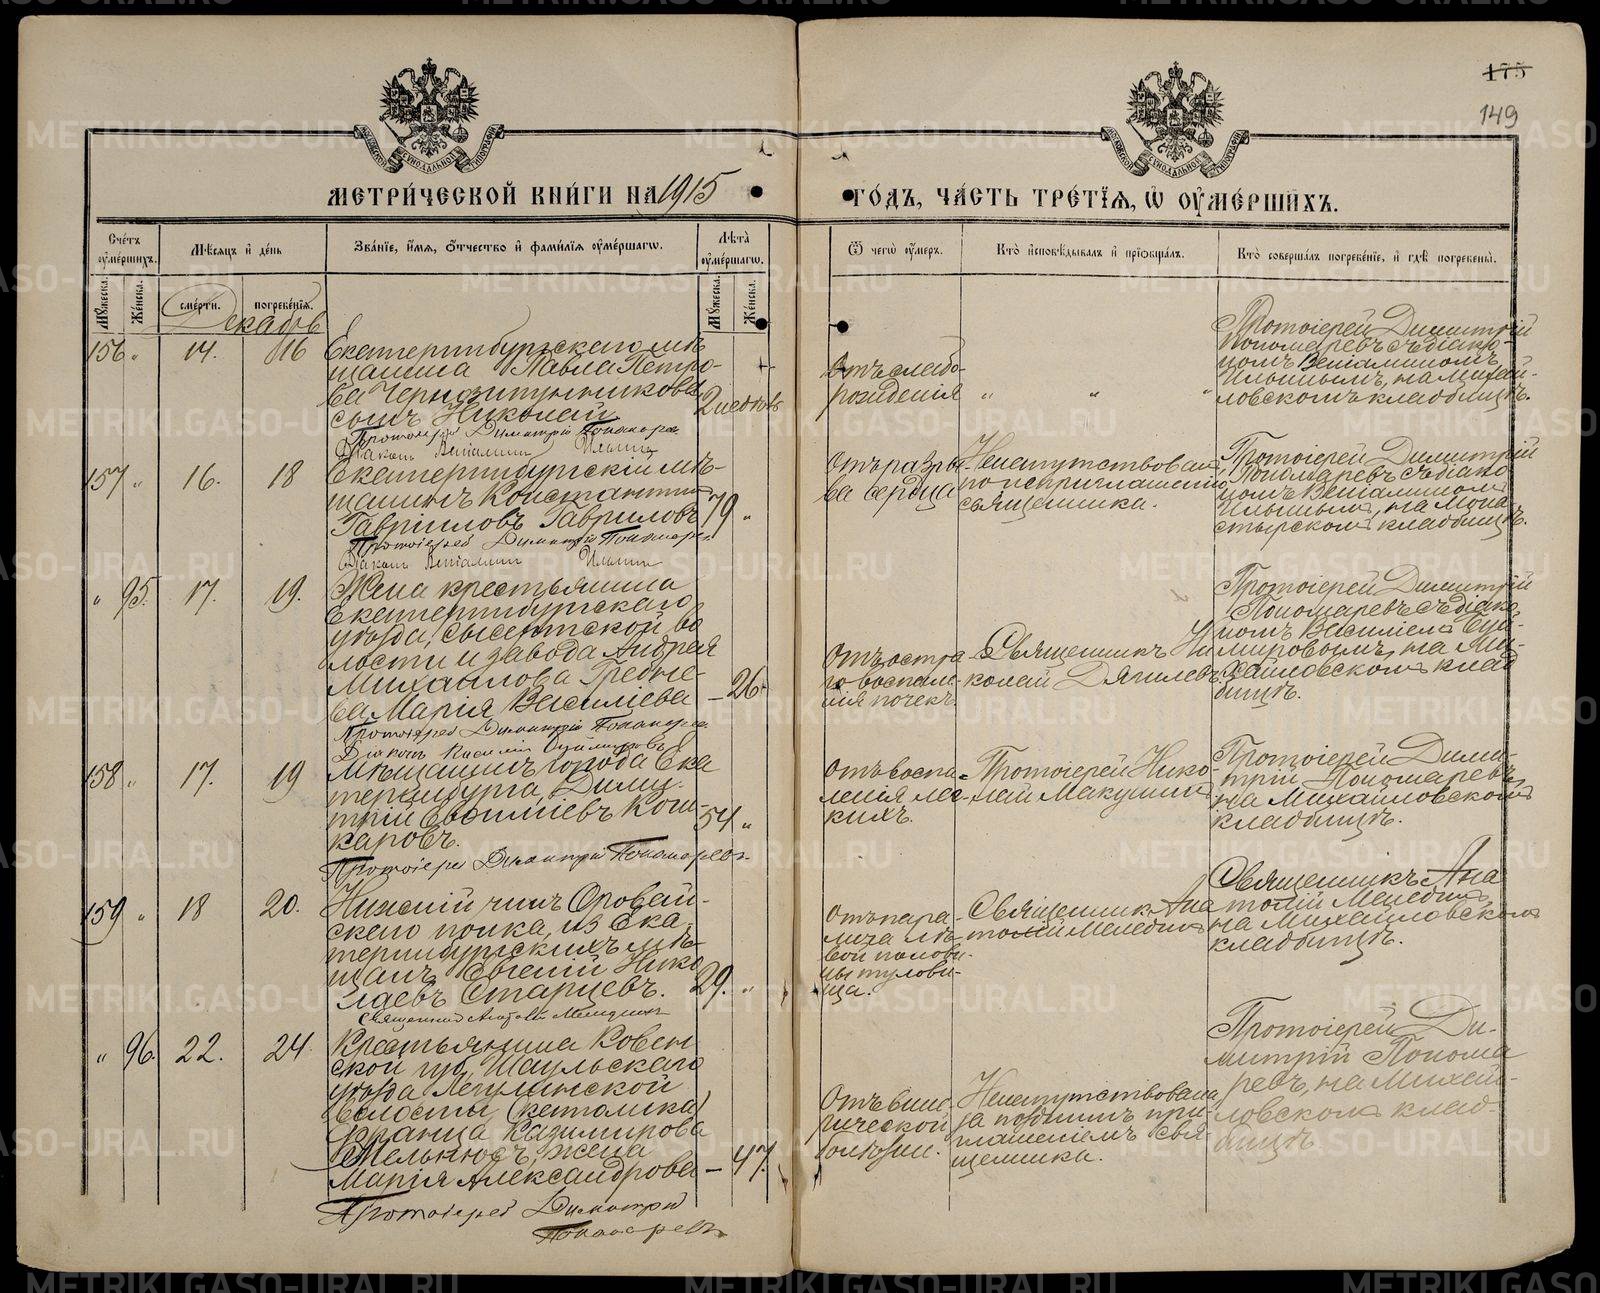 175
149
МЕТРИ́ЧЕСКОЙ КНИ́ГИ НА 1915
ГО́ДЪ, ЧА́СТЬ ТРЕ́ТЇѦ, Ѡ҆ ОУ҆МЕ́РШИХЪ.
Сче́тъ оу҆ме́ршихъ.
Мꙋ́жеска.
Же́нска.
Мѣ́сѧцъ и҆ де́нь
сме́рти.
погребе́нїѧ.
Зва́нїе, и҆́мѧ, ѻ҆́тчество и҆ фами́лїѧ оу҆ме́ршагѡ.
Лѣ́та оу҆ме́ршагѡ.
Мꙋ́жеска.
Же́нска.
Ѿ чегѡ̀ оу҆́меръ.
Кто̀ и҆сповѣ́дывалъ и҆ прїѻбща́лъ.
Кто̀ соверша́лъ погребе́нїе, и҆ гдѣ̀ погребены̀.
Декабрь
156 „ 14. 16
Екатеринбургскаго мѣ-
щанина Павла Петро-
ва
сынъ Николай
2 недѣль
Протоіерей Димитрій Пономаре.
Діаконъ Веніаминъ Ильинъ
Отъ слабо-
рожденія
„ „ „
Протоіерей Димитрій
Пономаревъ съ діако-
номъ Веніаминомъ
Ильинымъ, на Михай-
ловскомъ кладбищѣ.
157 „ 16. 18
Екатеринбургскій мѣ-
щанинъ Константинъ
Гавріиловъ Гавриловъ
79 „
Протоіерей Димитрій Пономарев.
Діаконъ Веніаминъ Ильинъ
Отъ разры-
ва сердца
Ненапутствованъ
по неприглашенію
священника.
Протоіерей Димитрій
Пономаревъ съ діако
номъ Веніаминомъ
Ильинымъ, на Мона
стырскомъ кладбищѣ.
„ 95. 17. 19.
Жена крестьянина
Екатеринбургскаго
уѣзда, Сысертской во
лости и завода Андрея
Михаилова
ва Марія Василіева
– 26.
Протоіерей Димитрій Пономарев.
Діаконъ Василій
Отъ остра-
го воспале-
нія почекъ.
Священникъ Ни
колай Дягилевъ
Протоіерей Димитрій
Пономаревъ съ діако
номъ Василіемъ
на Ми-
хайловскомъ клад
бищѣ.
158 „ 17. 19
Мѣщанинъ города Ека
теринбурга, Дими-
трій Евѳиміевъ Кош-
каровъ.
54 „
Протоіерей Димитрій Пономарев.
Отъ воспа-
ленія лег-
кихъ.
Протоіерей Нико-
лай Макушинъ
Протоіерей Дими-
трій Пономаревъ
на Михайловскомъ
кладбищѣ.
159 „ 18 20.
Нижній чинъ Оровай-
скаго полка, из Ека
теринбургскихъ мѣ-
щанъ Евгеній Нико
лаевъ Старцевъ.
29. „
Священникъ Анатолій
Отъ пара-
лича лѣ-
вой полови-
ны тулови-
ща.
Священник Ана
толій
Священникъ Ана
толій
на Михайловскомъ
кладбищѣ.
„ 96. 22. 24.
Крестьянина Ковен
ской губ, Шаульскаго
уѣзда
Волости (католика)
Франца Казимирова
жена
Марія Александрова
– 47.
Протоіерей Димитрій
Пономаревъ.
болѣзни.
Ненапутствована
за позднимъ при-
глашеніемъ свя-
щенника.
Протоіерей Ди-
митрій Понома
ревъ, на Михай-
ловскомъ клад-
бищѣ